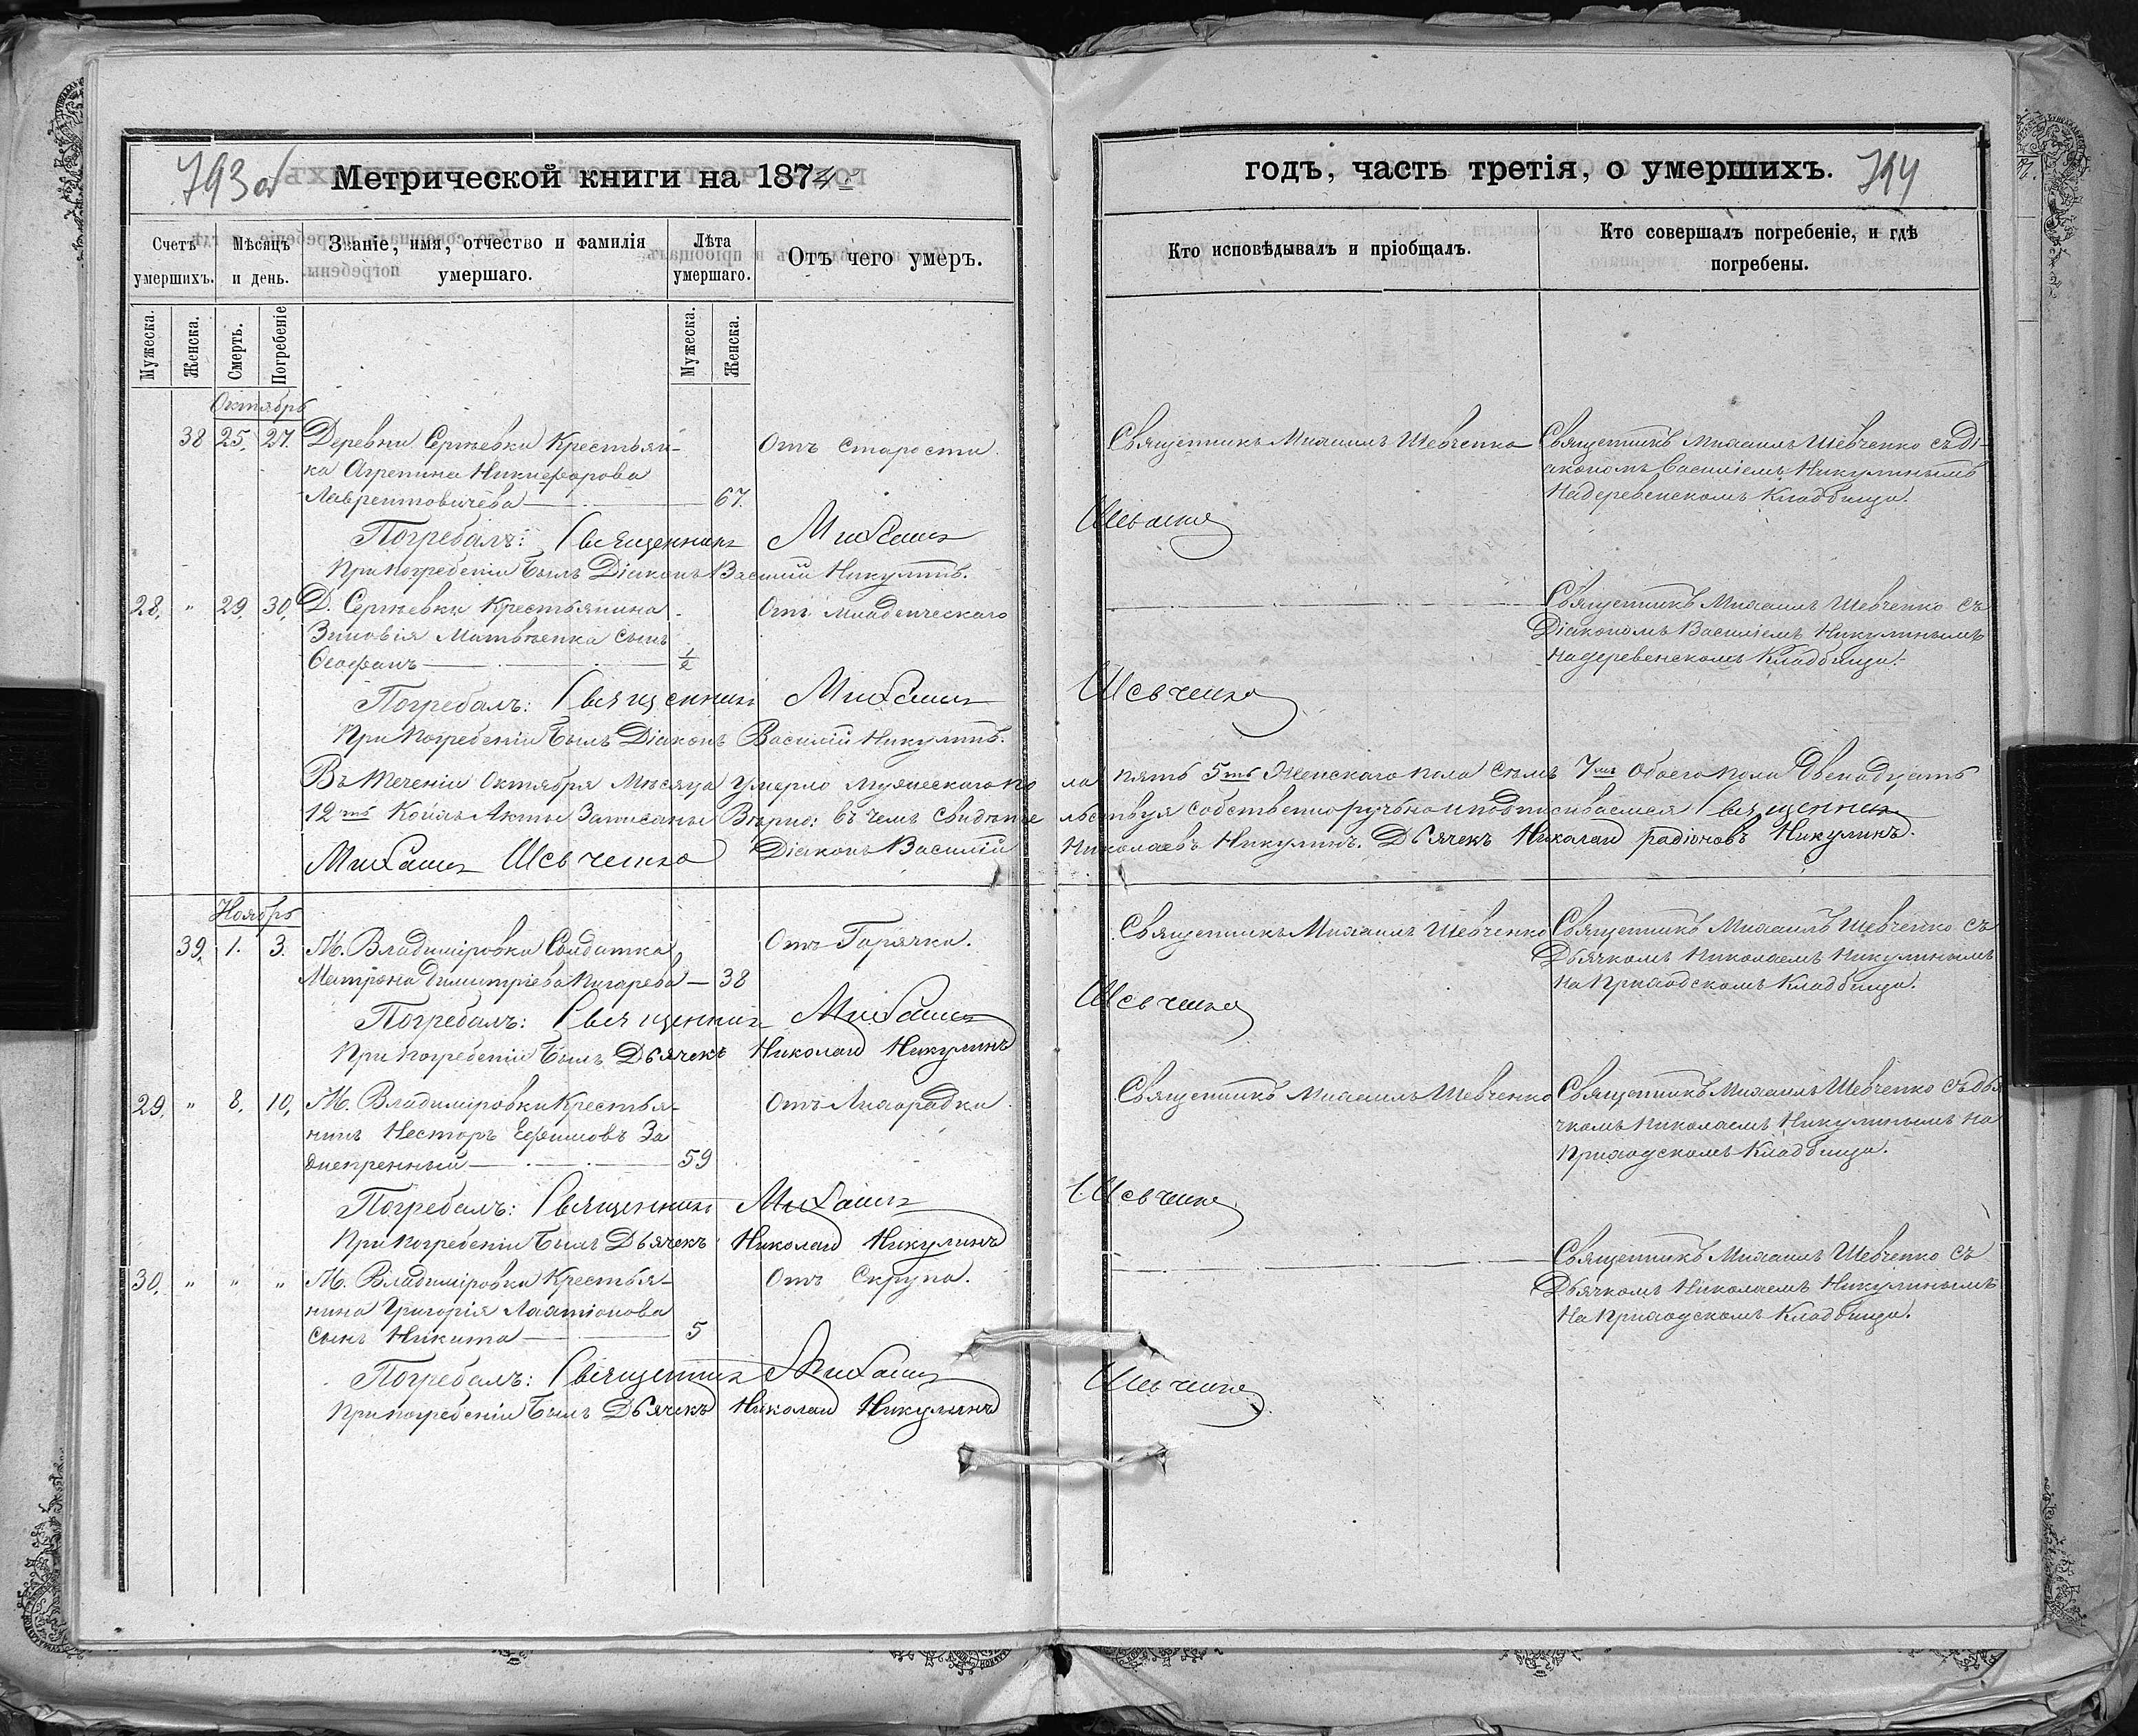 793 об
Метрической книги на 1874.
Счетъ умершихъ.
Мѣсяцъ и день.
Званіе, имя, отчество и фамилія умершаго.
Лѣта умершаго.
Отъ чего умеръ.
Мужеска.
Женска.
Смерть.
Погребеніе
Мужеска.
Женска.
Октябрь
38 25. 27. Деревни Сергѣевки Крестьян-
ка Агрепина Никифорова
Лаврентовичева 67.
Отъ старости.
Погребалъ: Священникъ Михаилъ
При погребеніи былъ Діаконъ Василій Никулинъ.
28. " 29. 30. Д. Сергѣевки Крестьянина
Зиновія Матвѣенка сынъ
Ѳеофанъ 1/2
Отъ младенческаго
Погребалъ: Священникъ Михаилъ
При погребеніи былъ Діаконъ Василій Никулинъ.
Въ теченіи Октября Мѣсяца умерло мужескаго по
12ть Коихъ Акты Записаны Вѣрно: въ чемъ свидѣте
Михаилъ Шевченко Діаконъ Василій
Ноябрь
39. 1. 3. М. Владиміровка Солдатка
Матрона Димитріева Пугарева 38
Отъ Горячки.
Погребалъ: Священникъ Михаилъ
При погребеніи былъ Дьячекъ Николай Никулинъ
29. " 8. 10. М. Владиміровки Крестья-
нинъ Несторъ Ефимовъ За
днепренный 59
Отъ Лихорадки
Погребалъ: Священникъ Михаилъ
При погребеніи былъ Дьячекъ Николай Никулинъ
30. " " " М. Владиміровки Крестья-
нина Григорія Лахтіонова
сынъ Никита 5
Отъ Скрупа.
Погребалъ: Священникъ Михаилъ
При погребеніи былъ Дьячекъ Николай Никулинъ
годъ, часть третія, о умершихъ.
794
Кто исповѣдывалъ и пріобщалъ.
Кто совершалъ погребеніе, и гдѣ погребены.
Священникъ Михаилъ Шевченко
Священникъ Михаилъ Шевченко съ Ді-
акономъ Василіемъ Никулинымъ
На деревенскомъ Кладбище.
Шевченко
Священникъ Михаилъ Шевченко съ
Діакономъ Василіемъ Никулинымъ
на деревенскомъ Кладбище.
Шевченко
ла пять 5ть Женскаго пола семь 7мь Обоего пола Двенадцать
льствуя собственноручно и подписиваемся Священник
Николаевъ Никулинъ. Дьячекъ Николай радіоновъ Никулинъ.
Священникъ Михаилъ Шевченко
Священникъ Михаилъ Шевченко съ
Дьячкомъ Николаемъ Никулинымъ
на Приходскомъ Кладбище.
Шевченко
Священникъ Михаилъ Шевченко
Священникъ Михаилъ Шевченко съ дья
чкомъ Николаемъ Никулинымъ на
Приходскомъ Кладбище.
Шевченко
Священникъ Михаилъ Шевченко съ
Дьячкомъ Николаемъ Никулинымъ
На Приходскомъ Кладбище.
Шевченко